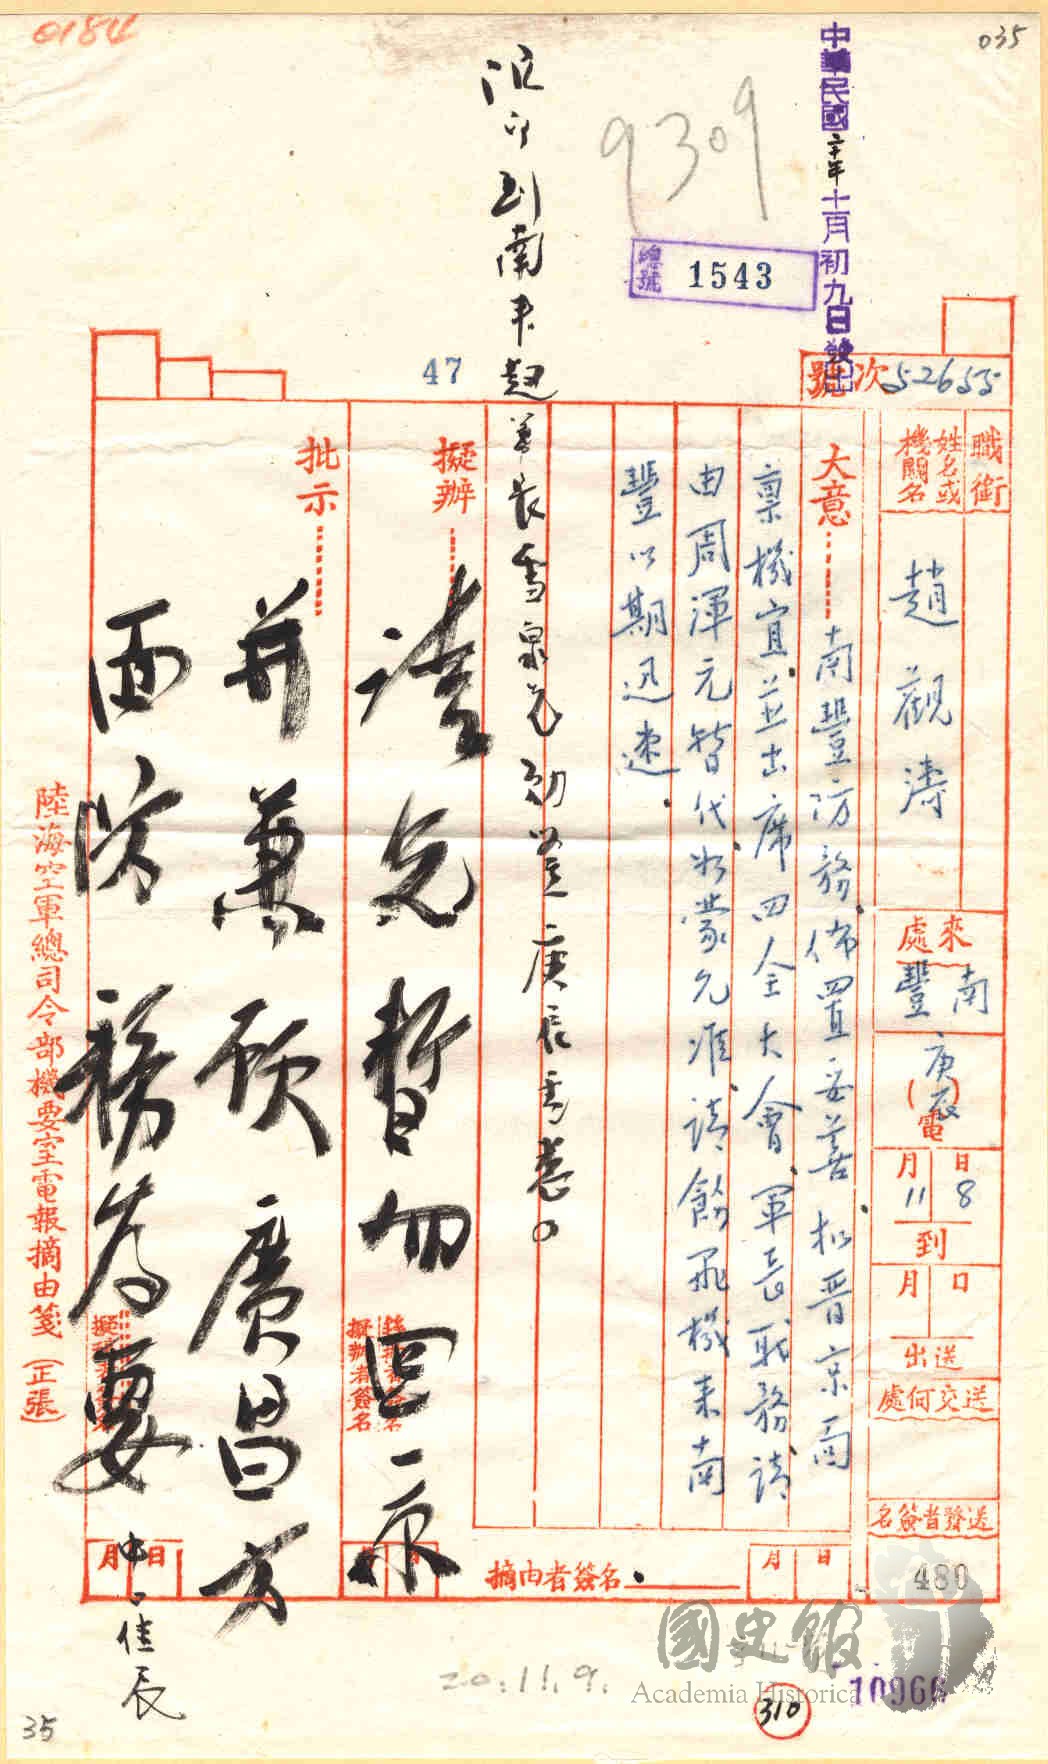 0184
035
中華民國二十年十一月初九日發出
9309
總號 1543
47
號次 52655
職銜
姓名或機關名
趙觀濤
來處
南豐
庚辰
(電)
11月8日
到
月 日
送出
送交何處
送發者簽名
480
大意
南豐防務佈置妥善擬晉京面
稟機宜並出席四全大會軍長職務請
由周渾元暫代如蒙允准請飭飛機來南
豐以期迅速
擬辦
批示
趙軍長雪泉兄勛鑒庚辰電悉。
請兄暫勿回京
并兼顧廣昌方
面防務為要
中 佳辰
擬辦者簽名
月 日
月 日
摘由者簽名
月 日
陸海空軍總司令部機要室電報摘由箋(正張)
國史館
Academia Historica
20.11.9.
310
10966
35